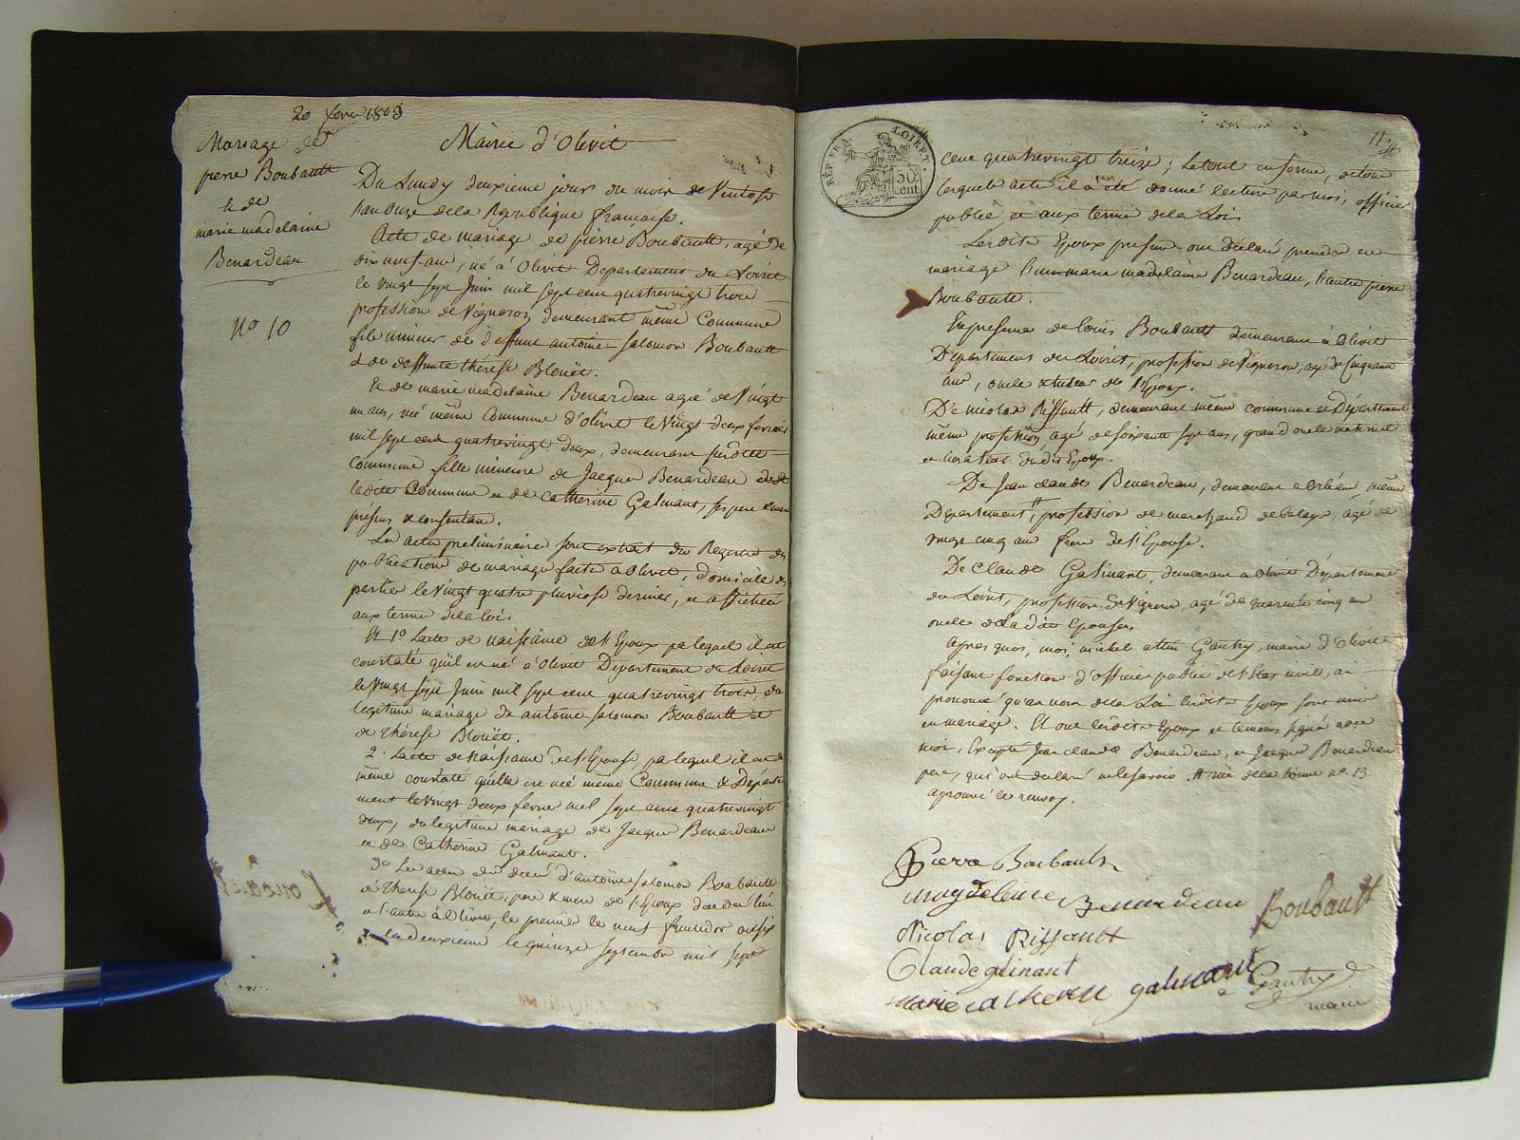 20 fevr 1803
Mariage de
pierre Boubault
& de
marie madelaine
Benardeau
No 10
Mairie d'Olivet
Du Lundy deuxieme jour du mois de Ventose
l'an onze de la République française.
Acte de mariage de pierre Boubault, agé de
dix neuf ans, né à Olivet Departement du Loiret
le vingt sept Juin mil sept cent quatrevingt trois
profession de Vigneron, demeurant même Commune
fils mineur de deffunt antoine Salomon Boubault
& de deffunte thérèse Blouët.
Et de marie madelaine Benardeau agée de Vingt
un ans, née même Commune d'olivet le Vingt deux fevrier
mil sept cent quatrevingt deux, demeurant susdite
Commune fille mineure de Jacques Benardeau
ladite Commune et de Catherine Galmant, ses pere & mere
presens & consentans.
Les actes preliminaires sont extrait du Registre des
publications de mariage faite à Olivet, domicile des
parties le Vingt quatre pluviose dernier, et affichées
aux terme de la loi.
Et 1º L'acte de naissance de l'Epoux par lequel il est
constaté qu'il est né à Olivet Departement du Loiret
le Vingt sept Juin mil sept cent quatrevingt trois, du
legitime mariage de antoine Salomon Boubault et
de thérèse Blouët.
2º L'acte de Naissance de l'Epouse par lequel il est de
même constaté qu'elle est née même Commune & Départe
ment le Vingt deux fevrier mil sept cent quatrevingt
deux, du legitime mariage de Jacques Benardeau
et de Catherine Galmant.
3º Les actes du décès d'antoine Salomon Boubault
& thérèse Blouët, pere & mere de l'Epoux décédé l'un
et l'autre à Olivet, le premier le neuf fructidor an six
et la deuxieme le quinze septembre mil sept
11
RÉP. FRA.
LOIRET.
50
cent
cent quatrevingt treize; Le tout en forme, de tous
lesquels actes il a été donné lecture par moi, officier
public, et aux terme de la Loi.
Lesdits Epoux presens ont déclaré prendre en
mariage l'un marie madelaine Benardeau, l'autre pierre
Boubault.
En presence de louis Boubault demeurant à Olivet
Departement du Loiret, profession de Vigneron, agé de Cinquante
ans, oncle & tuteur de l'Epoux.
De nicolas Riffault, demeurant même commune et Département
même profession, agé de soixante sept ans, grand oncle maternel
et curateur dudit Epoux.
De Jean claude Benardeau, demeurant à Orléans, même
Departement, # profession de marchand de balays, agé de
vingt cinq ans frere de l'Epouse.
De Claude Galinant, demeurant à Olivet Département
du Loiret, profession de Vigneron, agé de quarante cinq ans
oncle de ladite Epouse.
Apres quoi, moi, michel Gautry, maire d'Olivet
faisant fonction d'officier public de l'état civil, ai
prononcé qu'au nom de la Loi lesdits Epoux sont unis
en mariage. Et ont lesdits Epoux et temoins signé avec
moi, Excepté Jean claude Benardeau, et Jacques Benardeau
pere, qui ont declaré ne le savoir. # rue de la bonne nº 13
aprouvé le renvoy.
Pierre Boubault
magdeleine Benardeau
Boubault
Nicolas Riffault
Claude galinant
marie catherine galinant
Gautry
maire